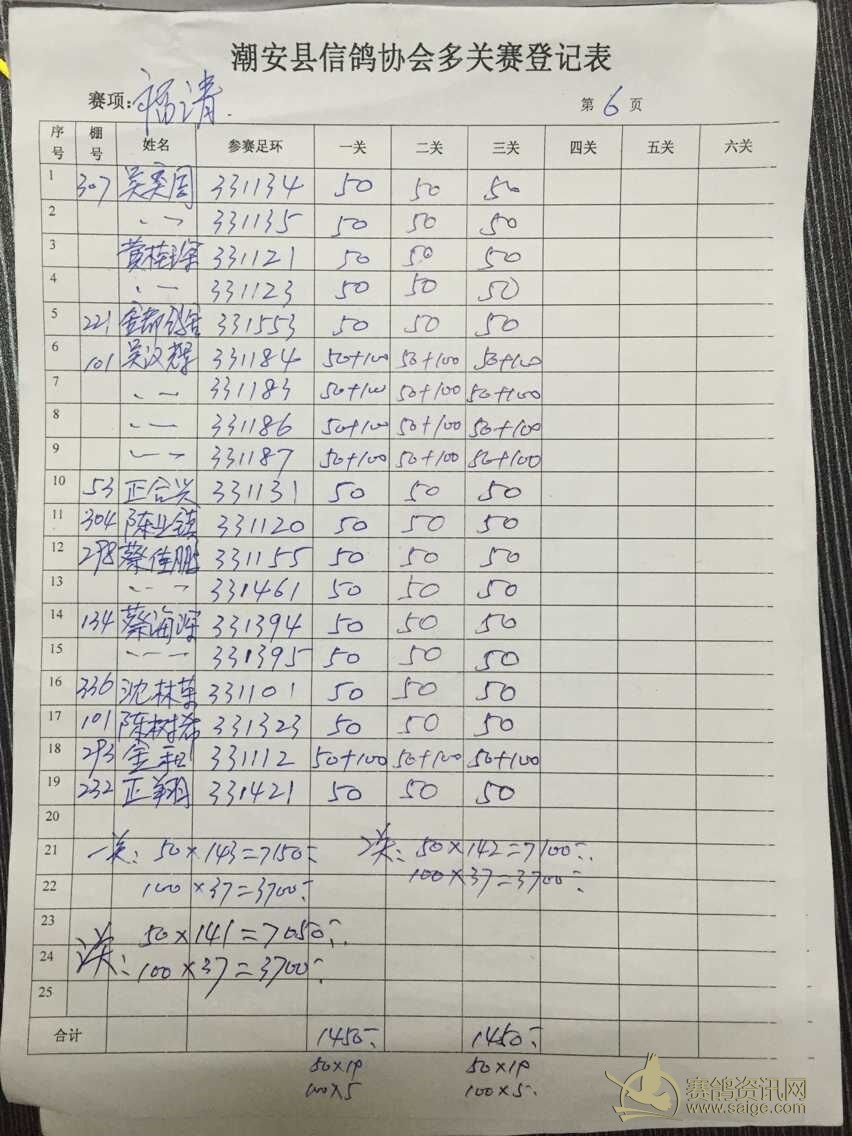 潮安县信鸽协会多关赛登记表
赛项:福清. 第6页
序号 棚号 姓名 参赛足环 一关 二关 三关 四关 五关 六关
1 307 吴奕周 331134 50 50 50
2 331135 50 50 50
3 黄桂 331121 50 50 50
4 331123 50 50 50
5 221 331553 50 50 50
6 101 吴汉辉 331184 50+100 50+100 50+100
7 331183 50+100 50+100 50+100
8 331186 50+100 50+100 50+100
9 331187 50+100 50+100 50+100
10 53 正合兴 331131 50 50 50
11 304 陈业镇 331120 50 50 50
12 298 蔡佳鹏 331155 50 50 50
13 331461 50 50 50
14 134 蔡海深 331394 50 50 50
15 331395 50 50 50
16 336 沈林 331101 50 50 50
17 101 陈树希 331323 50 50 50
18 293 金和 331112 50+100 50+100 50+100
19 232 正翔 331421 50 50 50
20
21 一关: 50×143=7150 二关: 50×142=7100
22 100×37=3700 100×37=3700
23 50×141=7050
24 三关: 100×37=3700
25
合计 1450 1450
50×19 50×19
100×5 100×5
赛鸽资讯网
www.saige.com